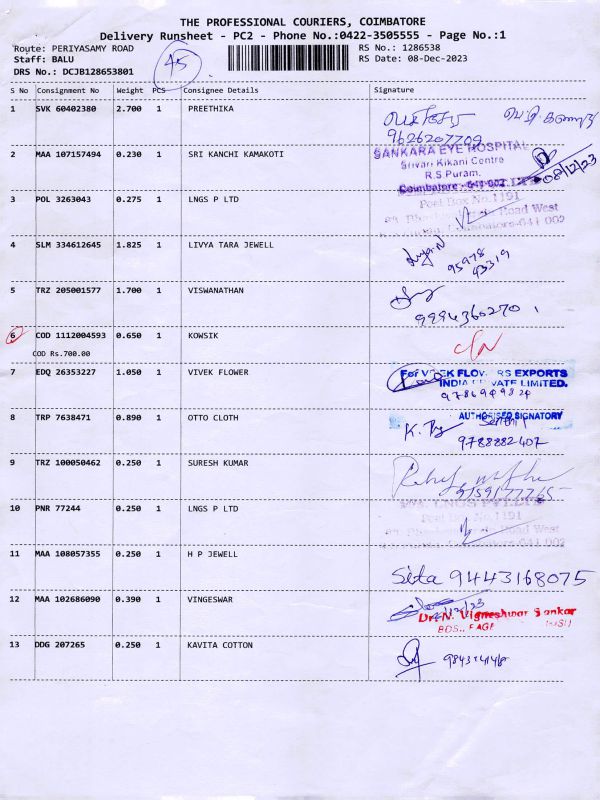 THE PROFESSIONAL COURIERS, COIMBATORE
Delivery Runsheet - PC2 - Phone No.:0422-3505555 - Page No.:1
Route: PERIYASAMY ROAD
Staff: BALU
DRS No.: DCJB128653801
45
RS No.: 1286538
RS Date: 08-Dec-2023
S No Consignment No Weight PCS Consignee Details Signature
1 SVK 60402380 2.700 1 PREETHIKA
9626207709
2 MAA 107157494 0.230 1 SRI KANCHI KAMAKOTI
SANKARA EYE HOSPITAL
Srivari Kikani Centre
R.S Puram,
Coimbatore - 641 002
08/12/23
3 POL 3263043 0.275 1 LNGS P LTD
Post Box No.1191
Road West
Coimbatore-641 002
4 SLM 334612645 1.825 1 LIVYA TARA JEWELL
95978
43319
5 TRZ 205001577 1.700 1 VISWANATHAN
9994360270
6 COD 1112004593 0.650 1 KOWSIK
COD Rs.700.00
7 EDQ 26353227 1.050 1 VIVEK FLOWER
For VIVEK FLOWERS EXPORTS
INDIA PRIVATE LIMITED.
8 TRP 7638471 0.890 1 OTTO CLOTH
AUTHORISED SIGNATORY
9788882407
9 TRZ 100050462 0.250 1 SURESH KUMAR
10 PNR 77244 0.250 1 LNGS P LTD
Post Box No.1191
Road West
Coimbatore-641 002
11 MAA 108057355 0.250 1 H P JEWELL
Sita 9443168075
12 MAA 102686090 0.390 1 VINGESWAR
Dr. N. Vigneshwar Sankar
13 DDG 207265 0.250 1 KAVITA COTTON